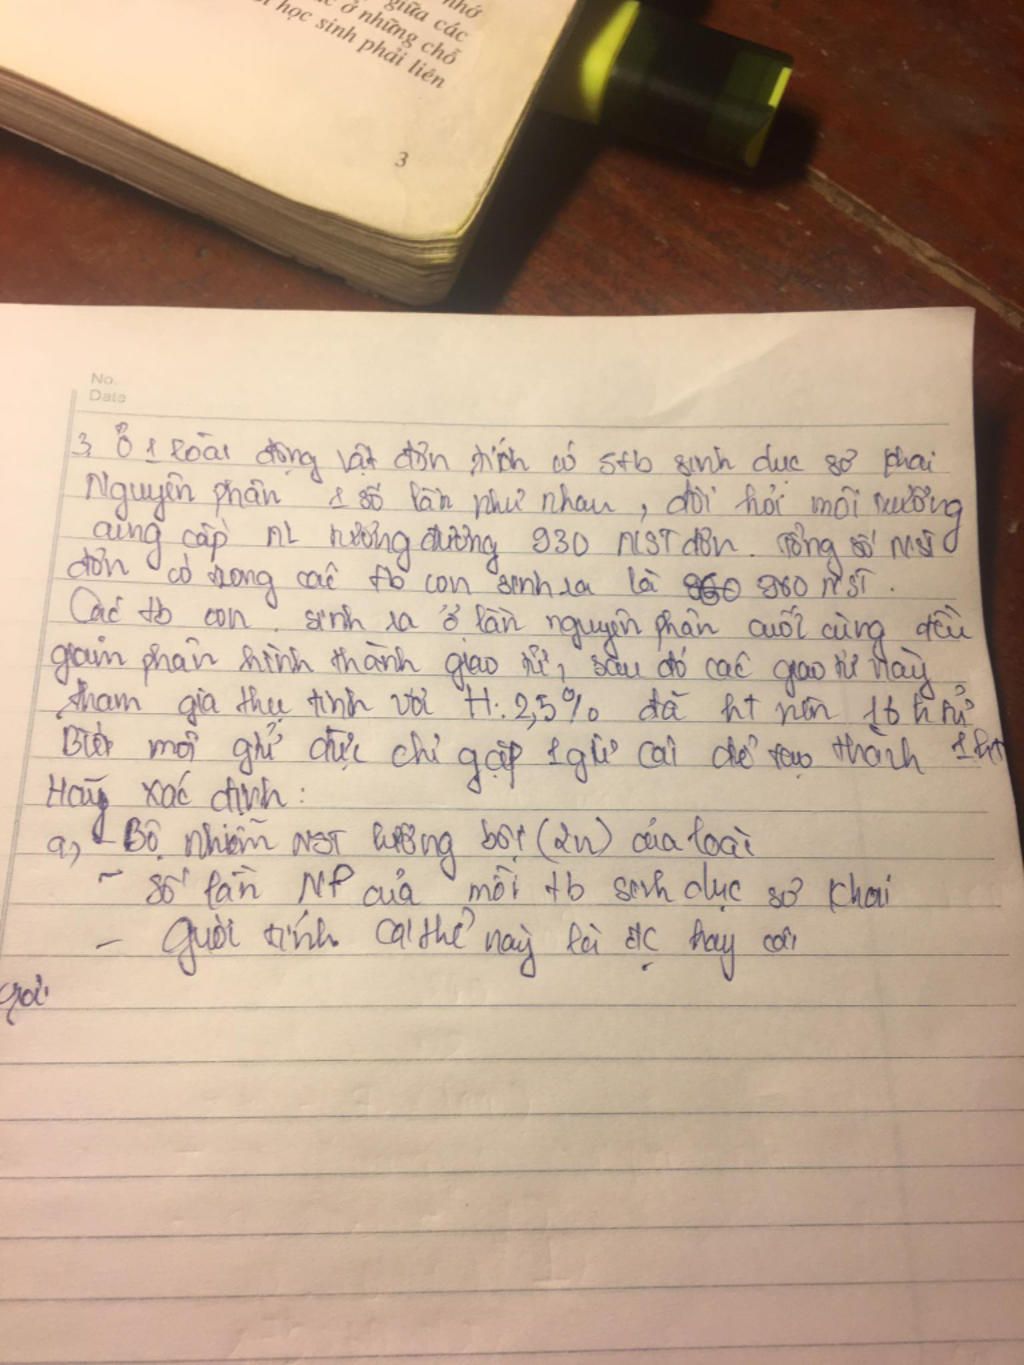 nhớ
giữa các
ở những chỗ
học sinh phải liên
3
No.
Date
3, Ở 1 loài động vật đơn tính có 5tb sinh dục sơ khai
Nguyên phân 1 số lần như nhau, đòi hỏi môi trường
cung cấp NL tương đương 930 NST đơn. Tổng số NST
đơn có trong các tb con sinh ra là 960 NST.
Các tb con sinh ra ở lần nguyên phân cuối cùng đều
giảm phân hình thành giao tử, sau đó các giao tử này
tham gia thụ tinh với H: 2,5% đã ht nên 16 h tử
Biết mỗi gtử đực chỉ gặp 1 gtử cái để tạo thành 1
Hãy xác định:
a, - Bộ nhiễm NST lưỡng bội (2n) của loài
- Số lần NP của mỗi tb sinh dục sơ khai
- Giới tính cá thể này là đực hay cái